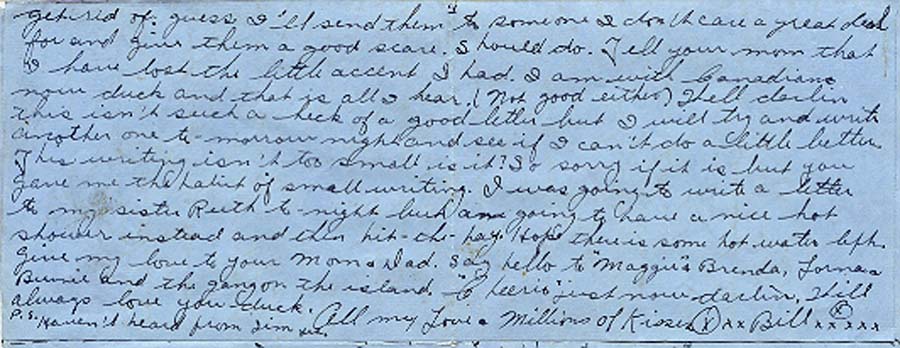 get rid of. guess I'll send them to someone I don't care a great deal
for and give them a good scare. Should do. Tell your mom that
I have lost the little accent I had. I am with Canadians
now duck and that is all I hear. (Not good either) Well darlin
this isn't such a heck of a good letter but I will try and write
another one to-morrow night and see if I can't do a little better.
This writing isn't too small is it? So sorry if it is but you
gave me the habit of small writing. I was going to write a letter
to my sister Ruth to night but am going to have a nice hot
shower instead and then hit-the-hay. Hope there is some hot water left.
Give my love to your Mom & Dad. Say hello to "Maggie" Brenda, Lorna &
Bunnie and the gang on the island. "Cheerio" just now darlin, I will
always love you duck. All my Love & Millions of Kisses (x) xx Bill xxxxx
P.S. Haven't heard from Jim yet.